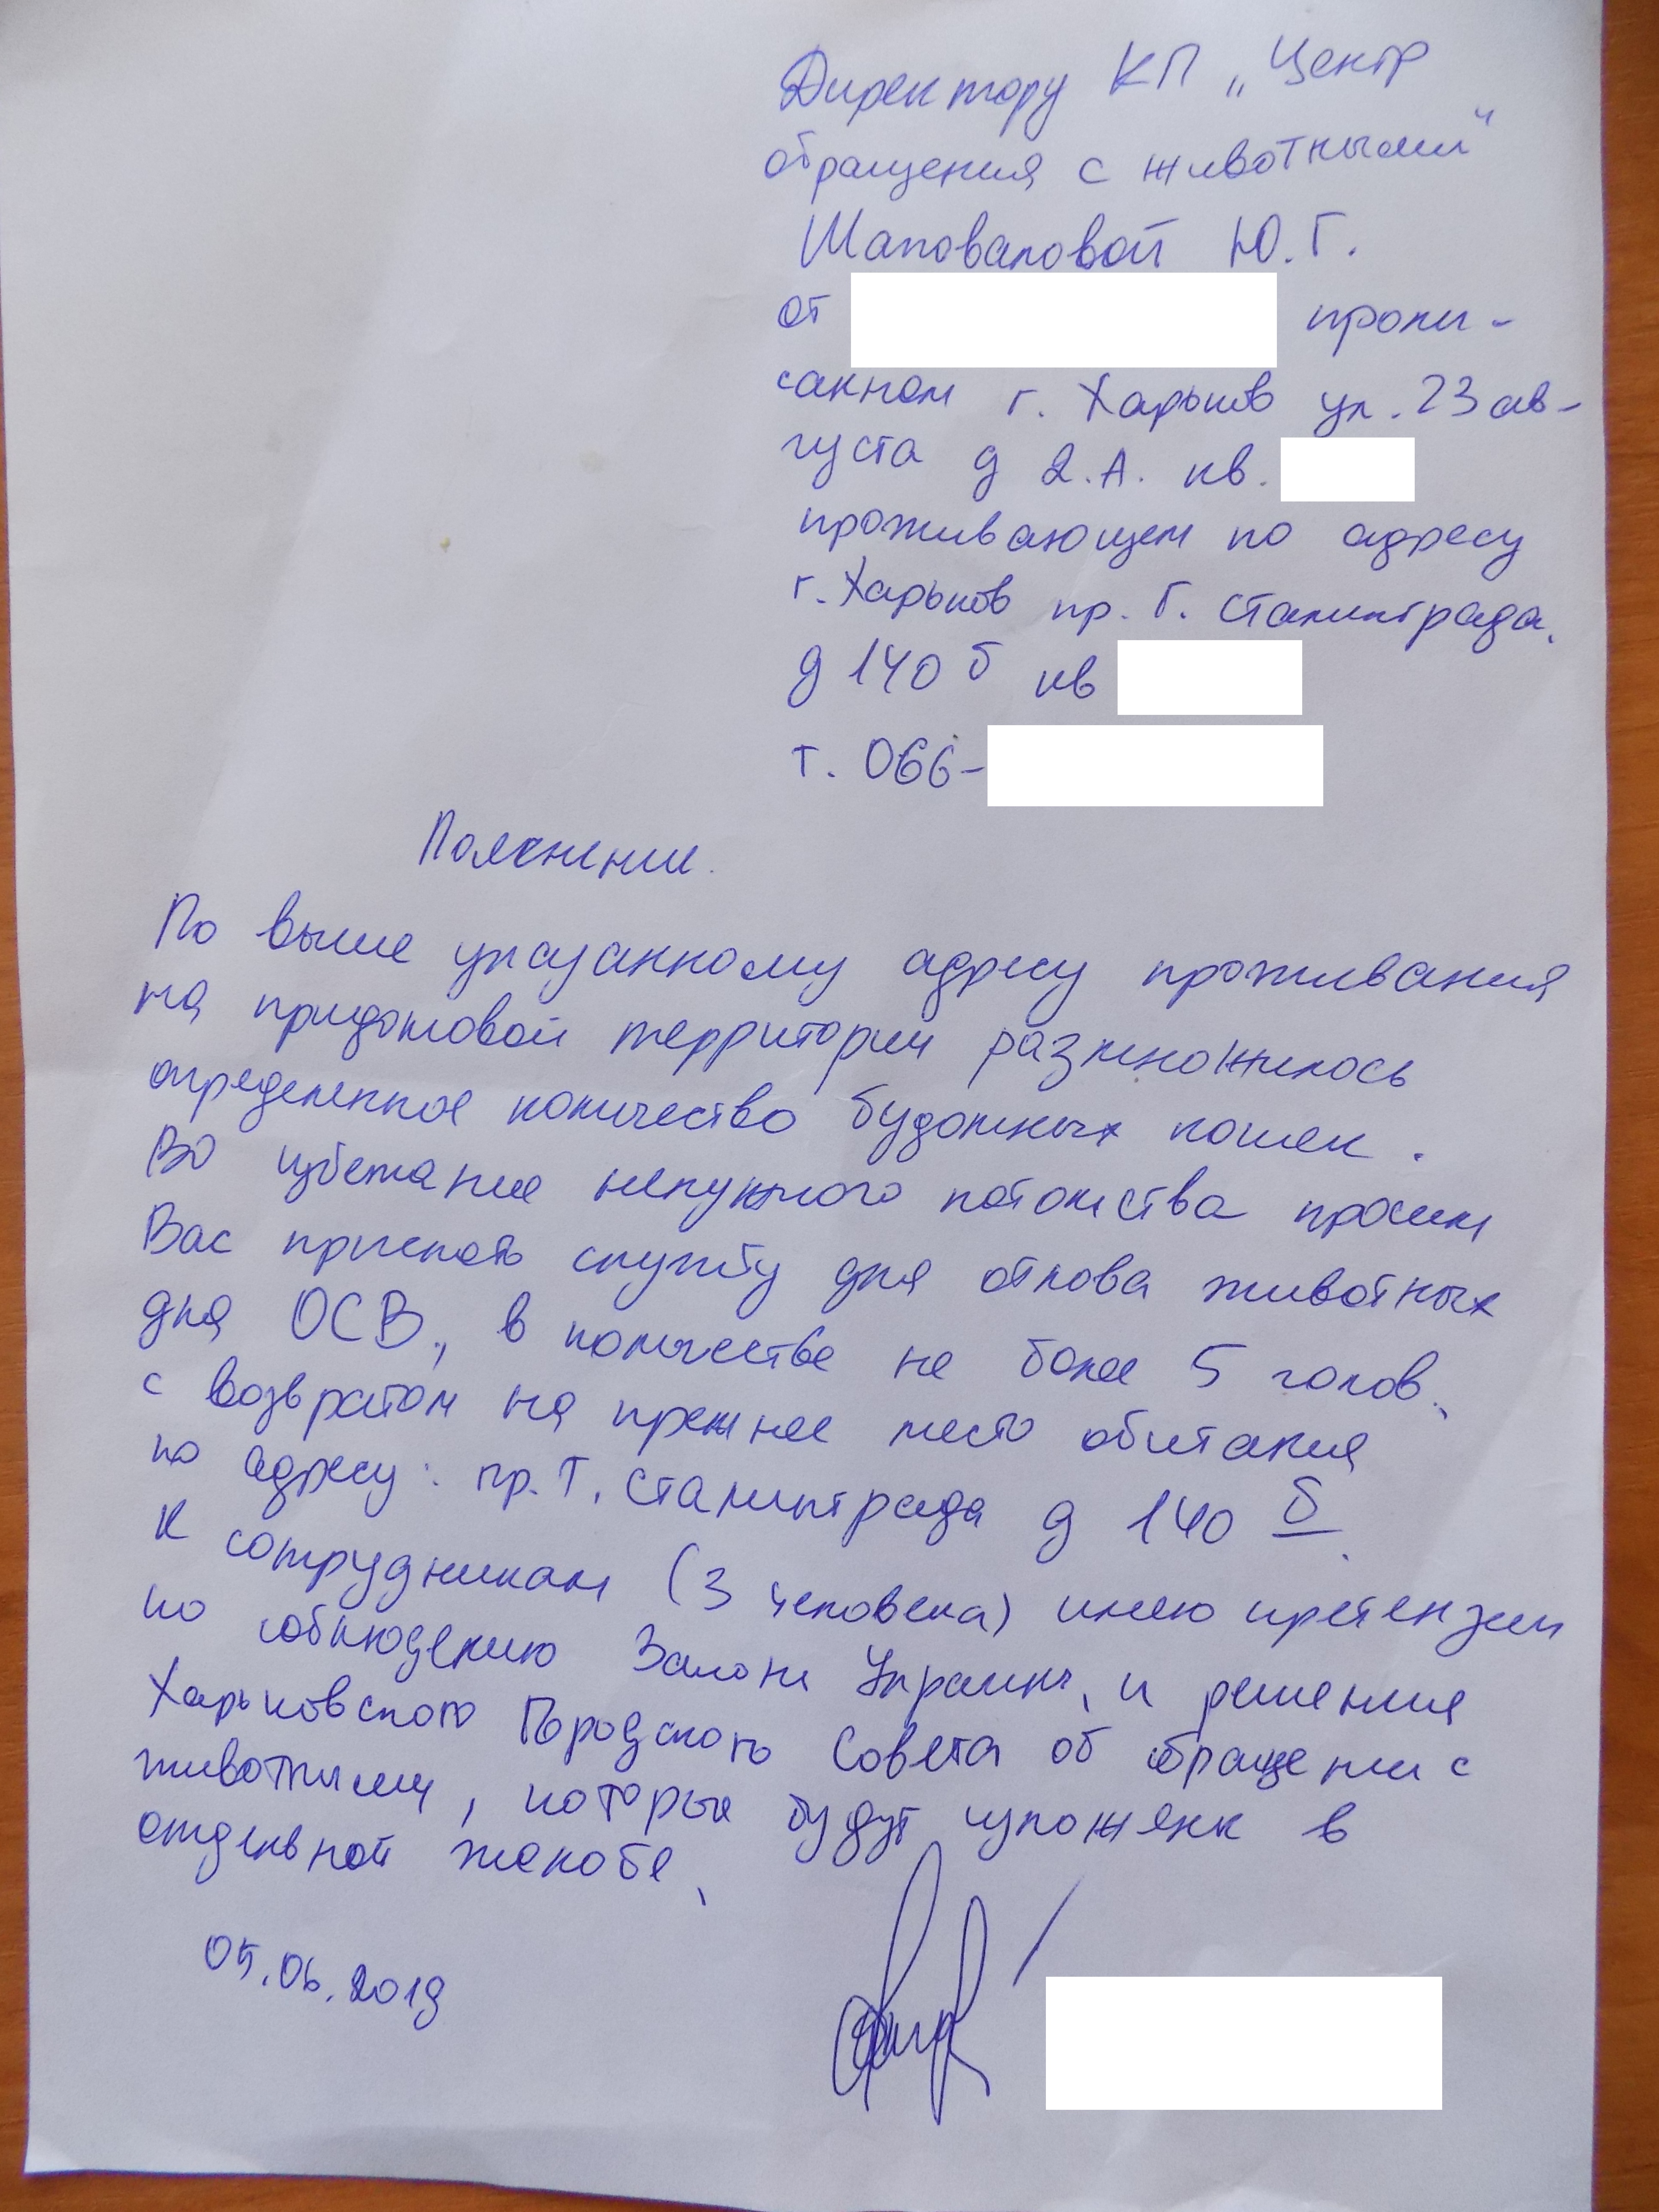 Директору КП „Центр
обращения с животными"
Шаповаловой Ю.Г.
от пропи-
санном г. Харьков ул. 23 ав-
густа д 2.А. кв.
проживающем по адресу
г. Харьков пр. Г. Сталинграда.
д 140 б кв
т. 066-
Пояснение.
По выше указанному адресу проживания
на придомовой территории размножилось
определенное количество бездомных кошек.
Во избежание ненужного потомства просим
Вас прислать службу для отлова животных
для ОСВ, в количестве не более 5 голов,
с возвратом на прежнее место обитания
по адресу: пр. Г. Сталинграда д 140 б.
К сотрудникам (3 человека) имею претензии
по соблюдению Закона Украины, и решения
Харьковского Городского Совета об обращении с
животными, которые будут изложены в
отдельной жалобе,
05.06.2019